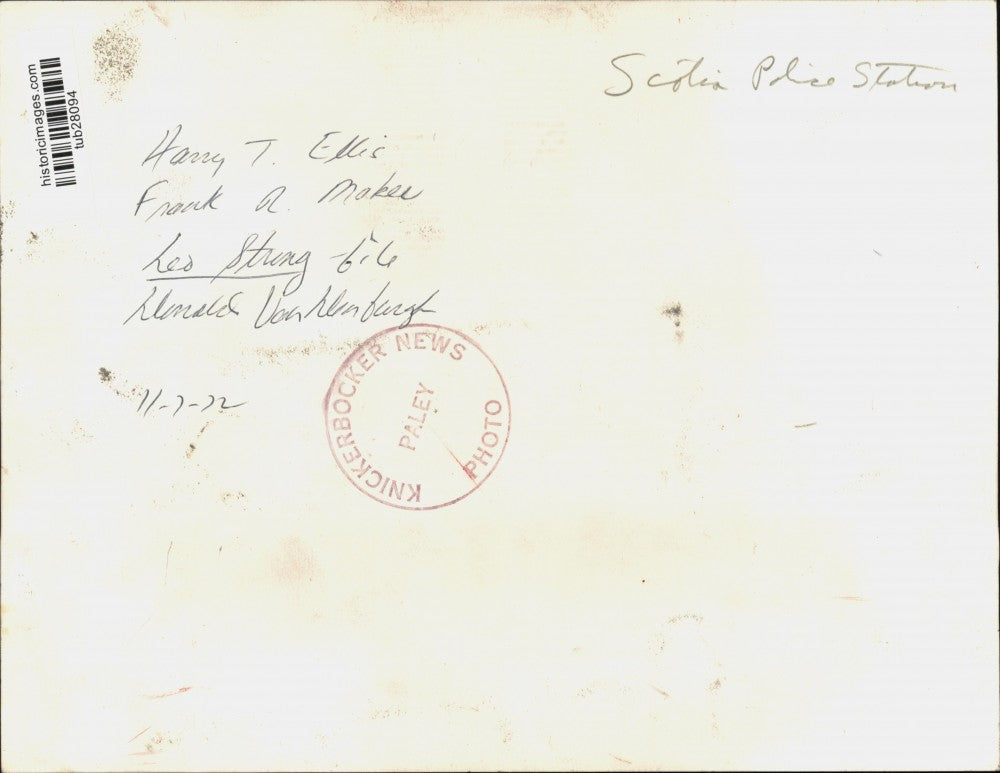 historicimages.com
tub28094
Scotia Police Station
Harry T. Ellis
Frank R.
Leo Strong file
Donald
11-7-72
KNICKERBOCKER NEWS
PALEY
PHOTO